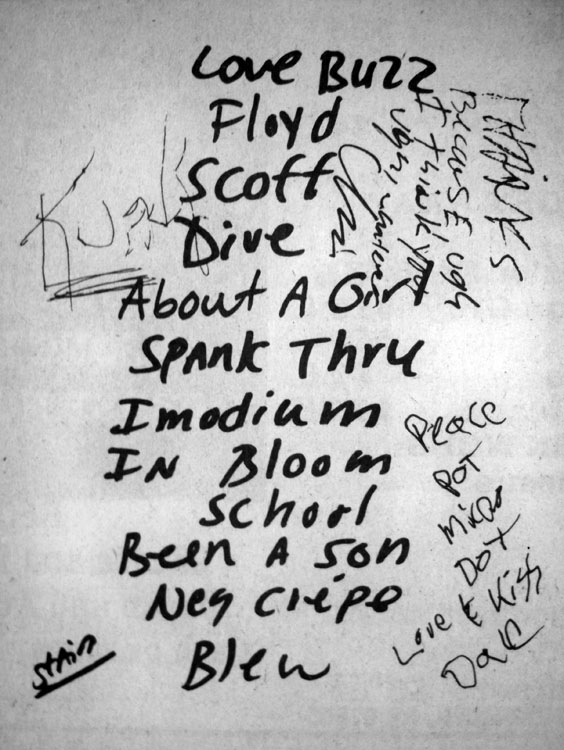 Love Buzz
Floyd
Scoff
Dive
About A Girl
Spank Thru
Imodium
IN Bloom
School
Been A Son
Neg Crepe
Blew
Stain
THANKS
BECAUSE ugh
I think you
ugh
Peace
Pot
Micro
Dot
Love & Kiss
Dale